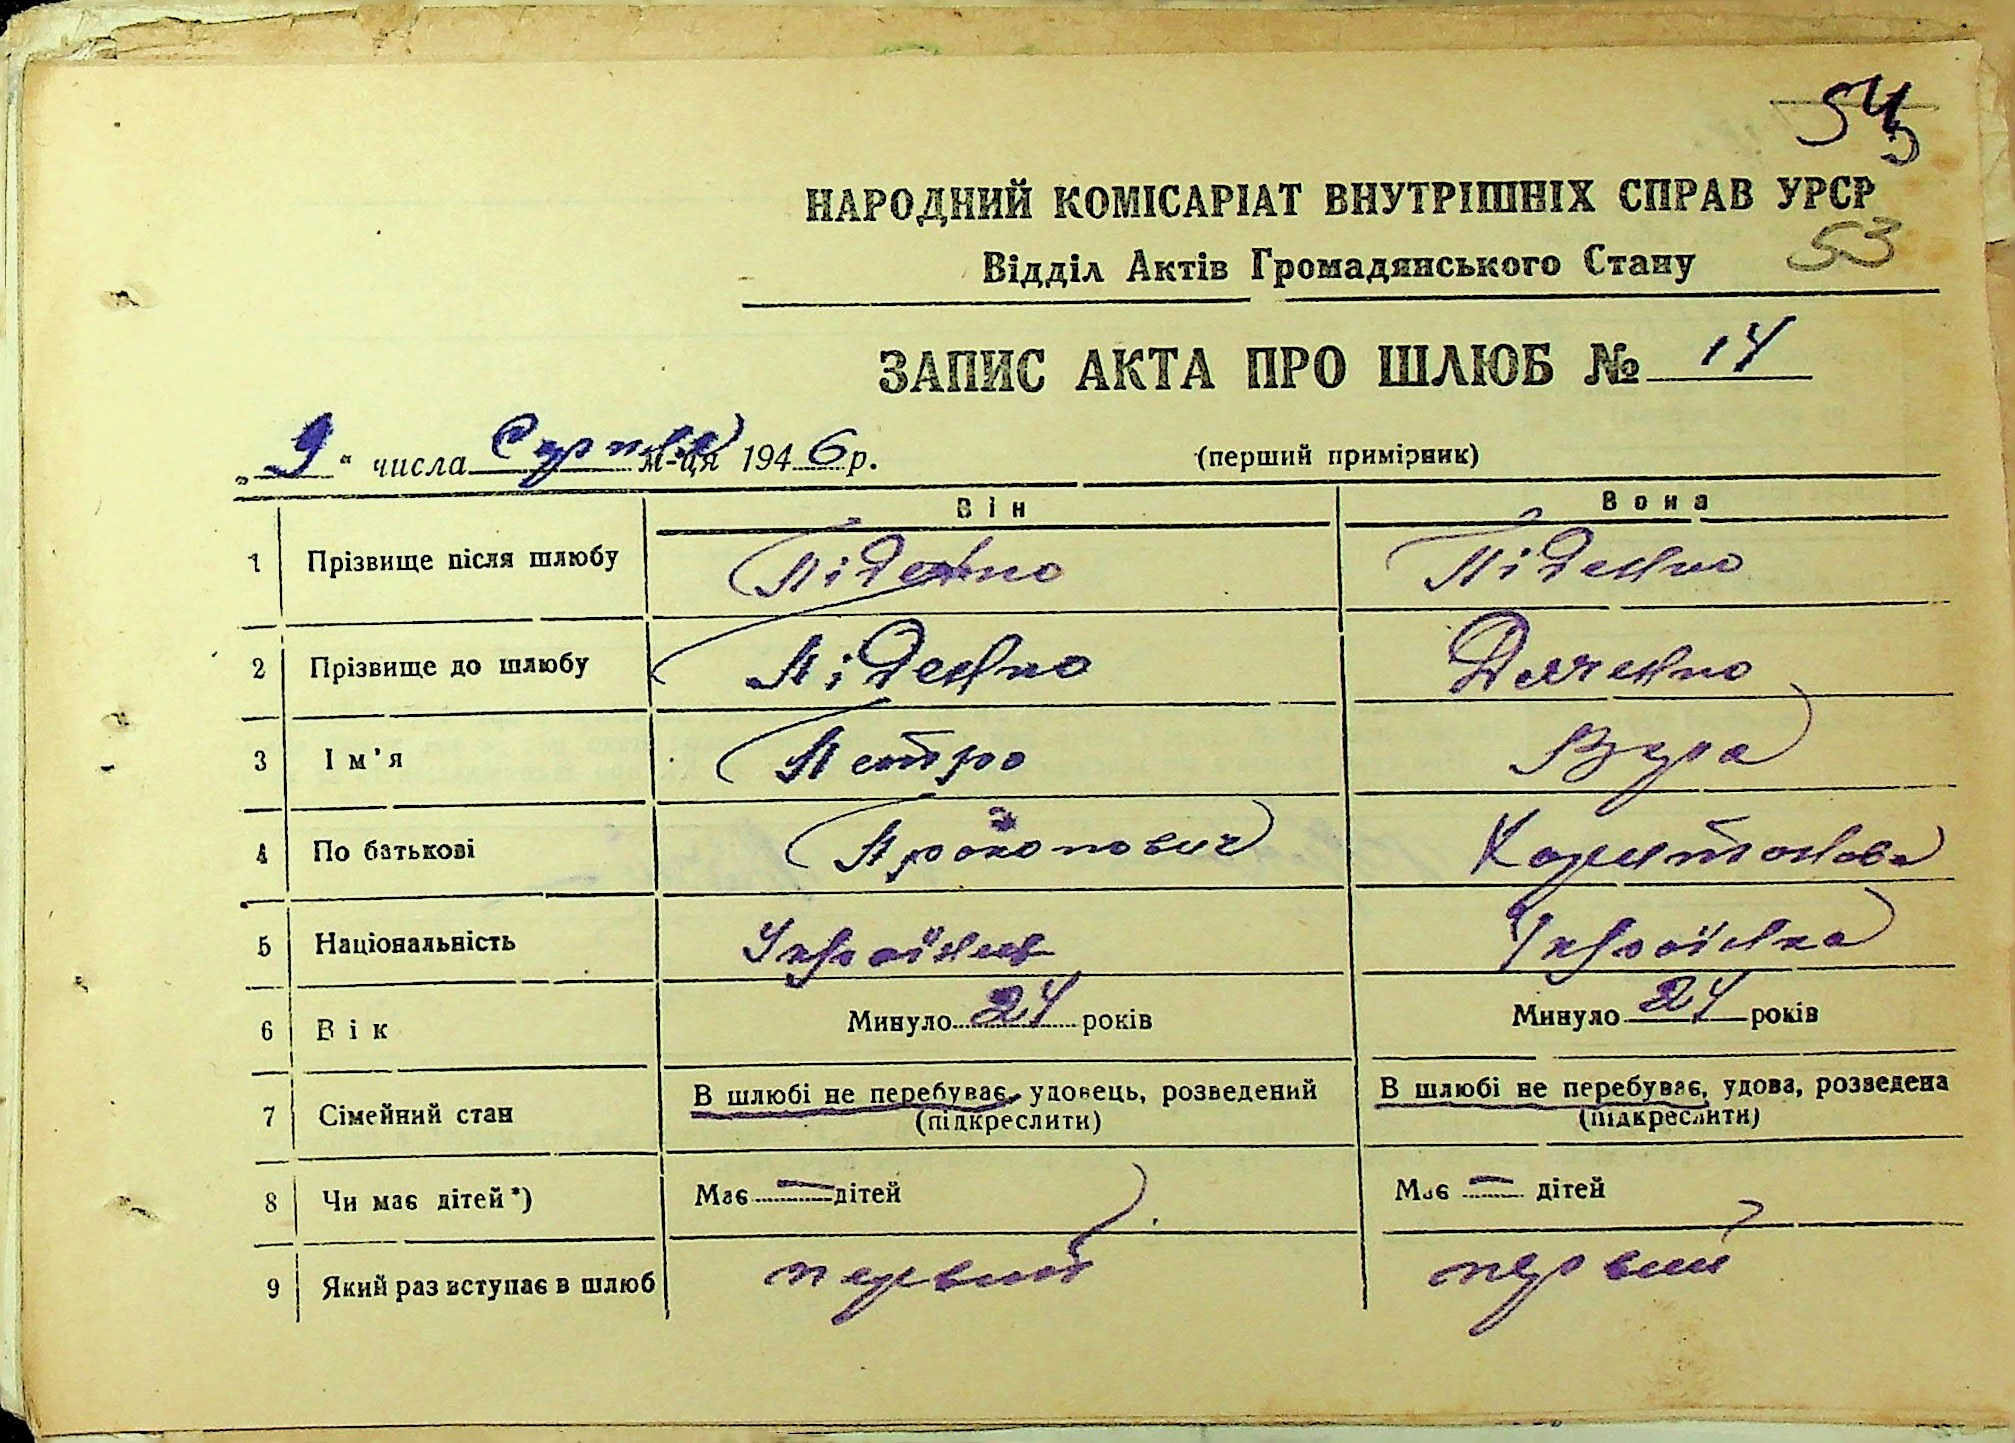 54
НАРОДНИЙ КОМІСАРІАТ ВНУТРІШНІХ СПРАВ УРСР
53
Відділ Актів Громадянського Стану
ЗАПИС АКТА ПРО ШЛЮБ № 14
„9“ числа Серпня м-ця 1946 р. (перший примірник)
Він Вона
1 Прізвище після шлюбу Піденко Піденко
2 Прізвище до шлюбу Піденко Дяченко
3 Ім'я Петро Вера
4 По батькові Прокопович Харитонова
5 Національність Українець Українка
6 Вік Минуло 24 років Минуло 24 років
7 Сімейний стан В шлюбі не перебуває, удовець, розведений В шлюбі не перебуває, удова, розведена
(підкреслити) (підкреслити)
8 Чи має дітей*) Має — дітей Має — дітей
9 Який раз вступає в шлюб первий первий